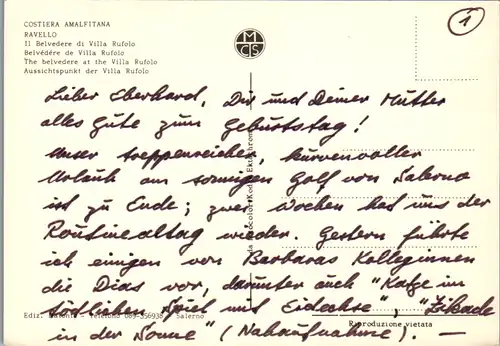 COSTIERA AMALFITANA
RAVELLO
Il Belvedere di Villa Rufolo
Belvédére de Villa Rufolo
The belvedere at the Villa Rufolo
Aussichtspunkt der Villa Rufolo
MCS
1
Lieber Eberhard, Dir und Deiner Mutter
alles Gute zum Geburtstag!
Unser treppenreicher, kurvenvoller
Urlaub am sonnigen Golf von Salerno
ist zu Ende; zwei Wochen hat uns der
Routinealltag wieder. Gestern führte
ich einigen von Barbaras Kolleginnen
die Dias vor, darunter auch "Katze im
tödlichen Spiel mit Eidechse", "Zikade
in der Sonne" (Nahaufnahme). —
Ediz. - Telefono 089-356938 Salerno
Fotocolor Kodak Ektachrome
Riproduzione vietata